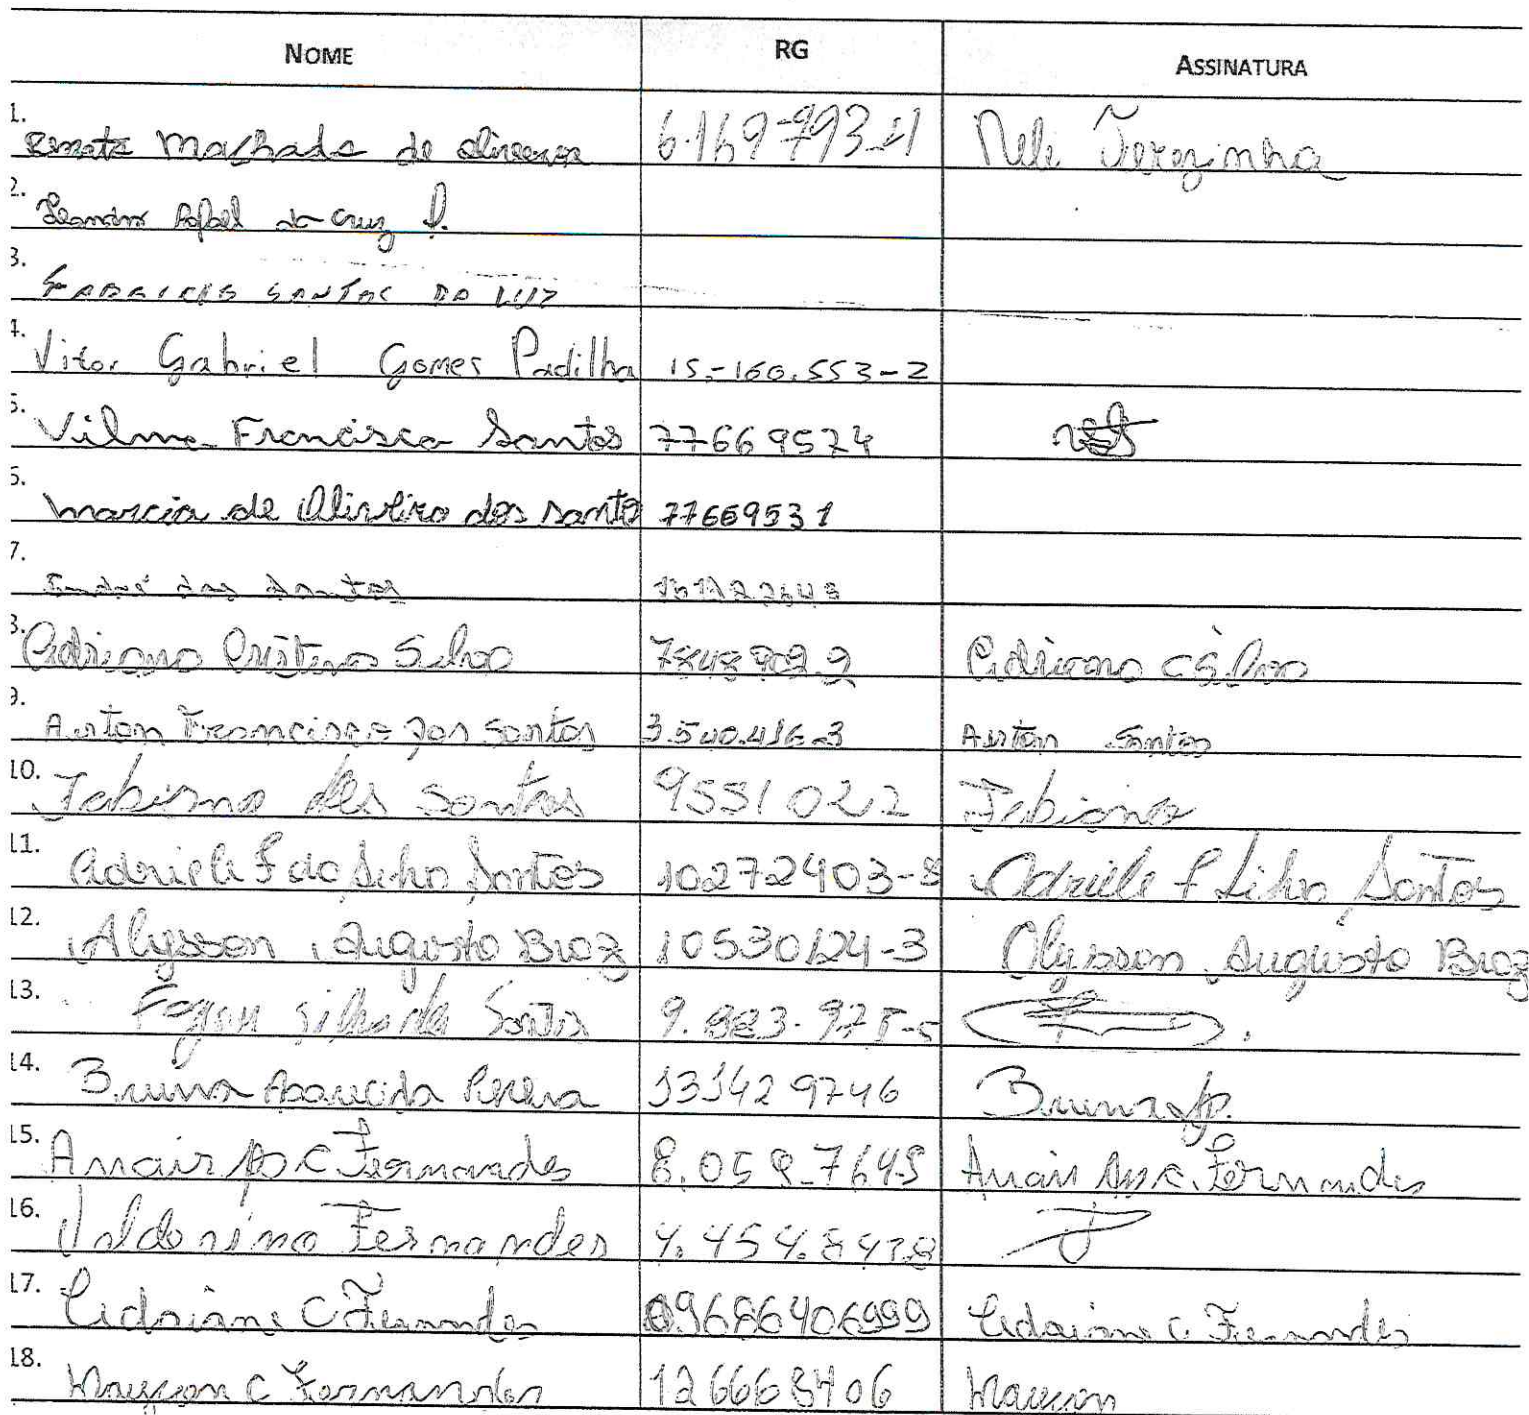 NOME RG ASSINATURA
1. Machado de 6.169 793-1 Nele Terezinha
2. Leandro Rafael da Cruz
3. SANTOS DA LUZ
4. Vitor Gabriel Gomes Padilha 15.160.553-2
5. Vilma Francisca Santos 77669574
6. marcia de Oliveira dos santo 77669531
7. dos Santos
8. Adriano Silva Adriano C Silva
9. Airton Francisco dos Santos 3.540.416-3 Airton Santos
10. Fabiana dos Santos 9551022 Fabiana
11. Adriele F da Silva Santos 10272403-8 Adriele F Silva Santos
12. Alysson Augusto Braz 10530124-3 Alysson Augusto Braz
13. Santos
14. Bruna Aparecida Pereira 131429746 Bruna Ap.
15. Anair Ap C Fernandes Anair Ap C. Fernandes
16. Valdorino Fernandes
17. C Fernandes 09686406999 C. Fernandes
18. Maycon C Fernandes 126668406 Maycon